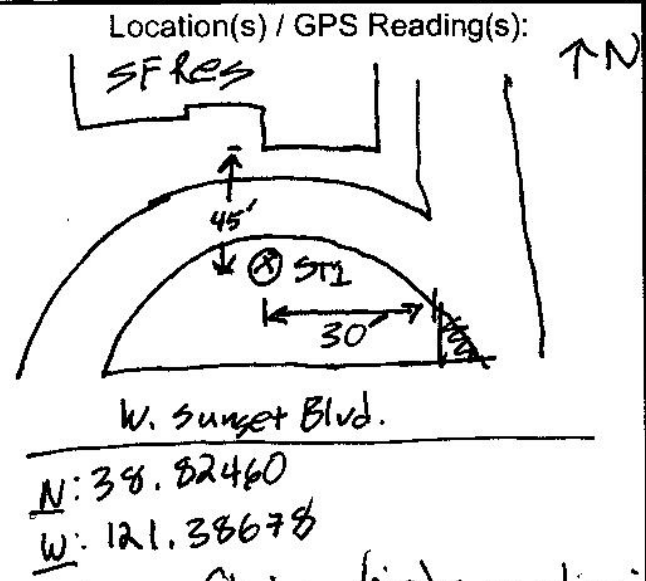 Location(s) / GPS Reading(s):
↑N
SF Res
45'
ST1
30'
W. Sunset Blvd.
N: 38.82460
W: 121.38678